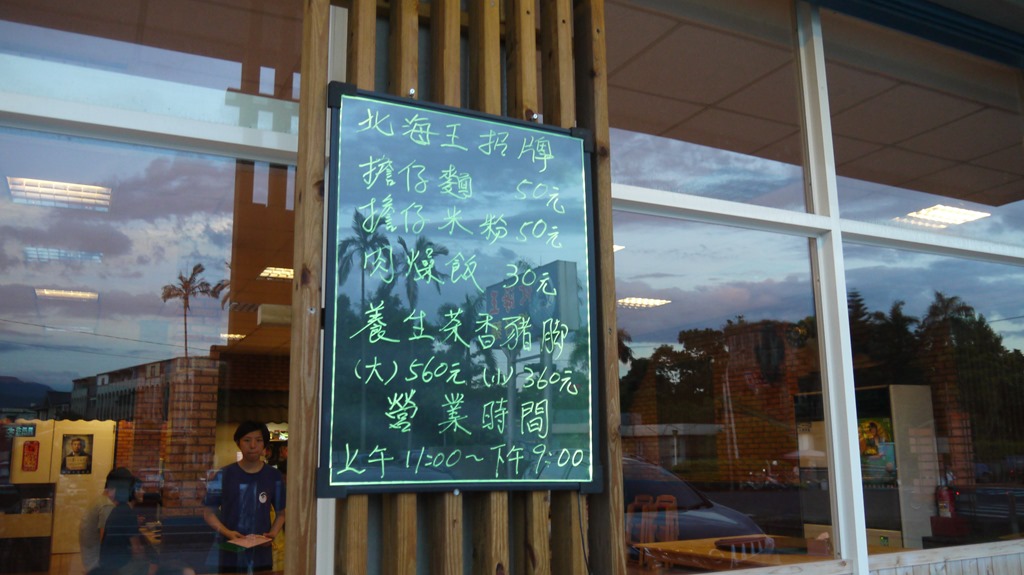 北海王招牌
擔仔麵 50元
擔仔米粉 50元
肉燥飯 30元
養生茶香豬腳
(大)560元 (小)360元
營業時間
上午11:00~下午9:00